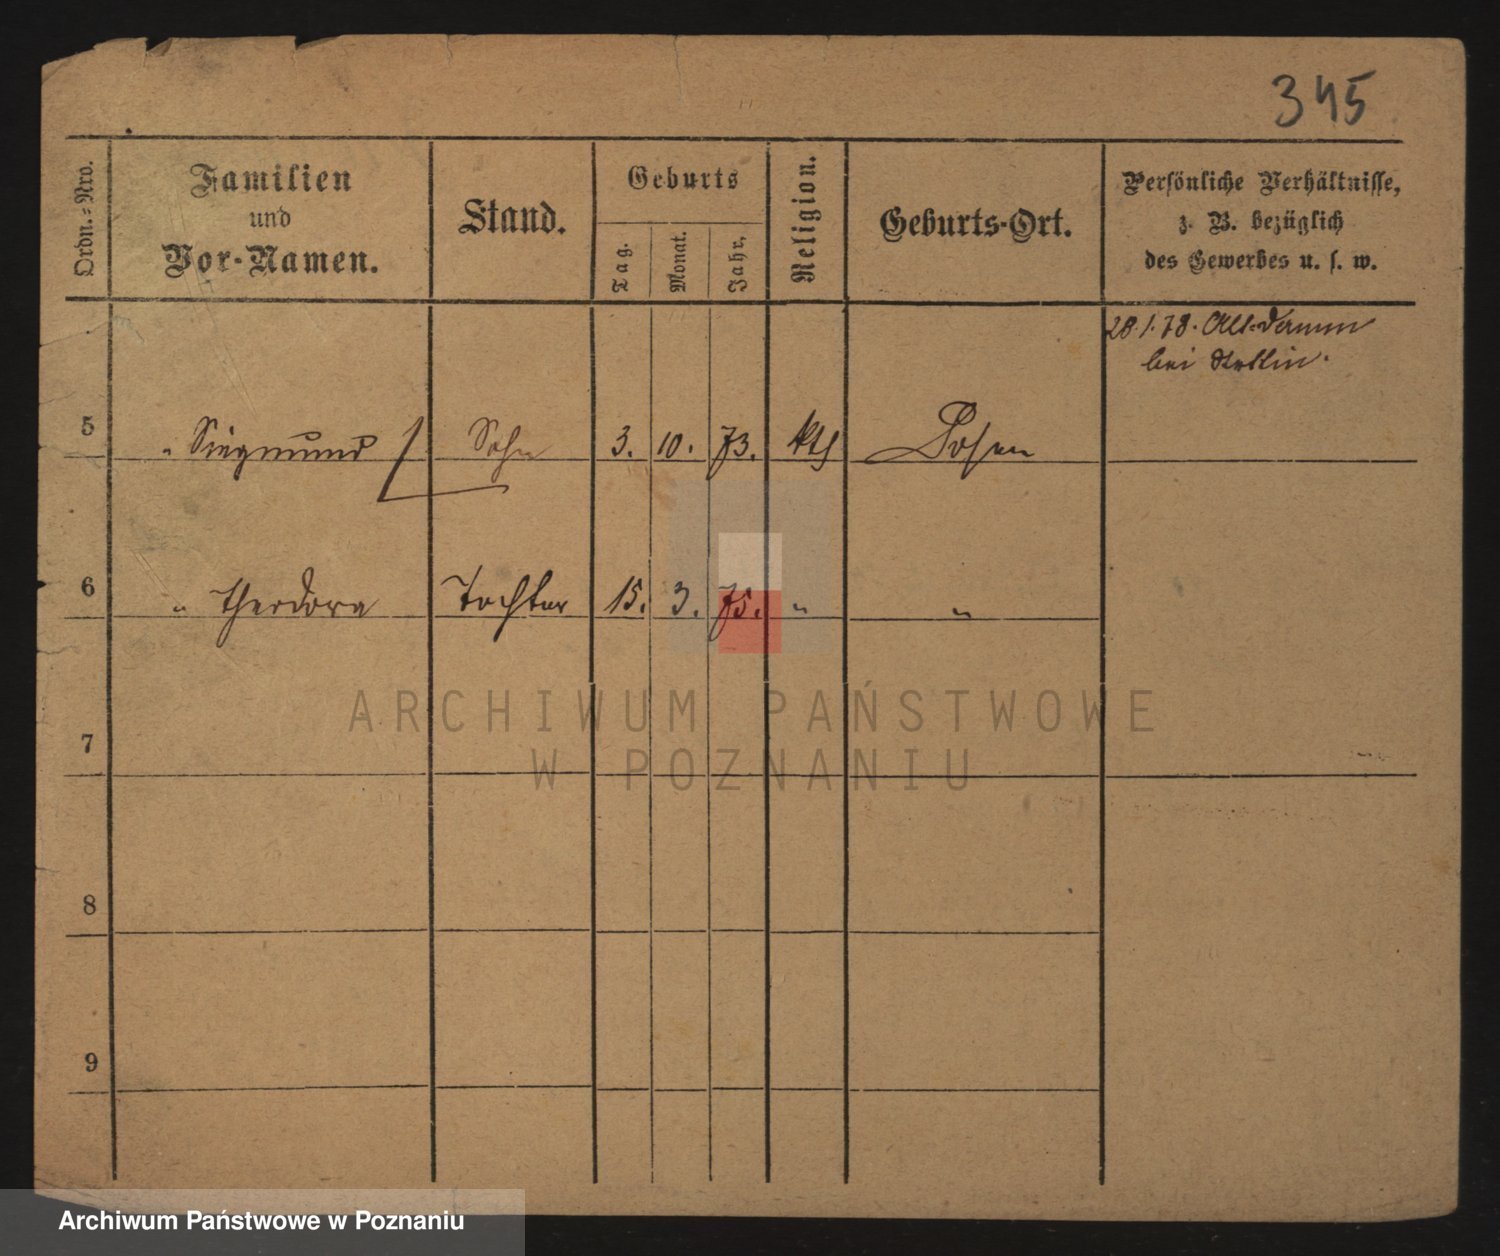 345
Ordn.-Nro.
Familien
und
Vor-Namen.
Stand.
Geburts
Tag.
Monat.
Jahr,
Religion.
Geburts-Ort.
Persönliche Verhältnisse,
z. B. bezüglich
des Gewerbes u. s. w.
28.1.78. Alt-Damm
bei Stettin.
5 " Siegmund Sohn 3. 10. 73. kth Posen
6 " Theodora Tochter 15. 3. 75. " "
ARCHIWUM PAŃSTWOWE
W POZNANIU
7
8
9
Archiwum Państwowe w Poznaniu